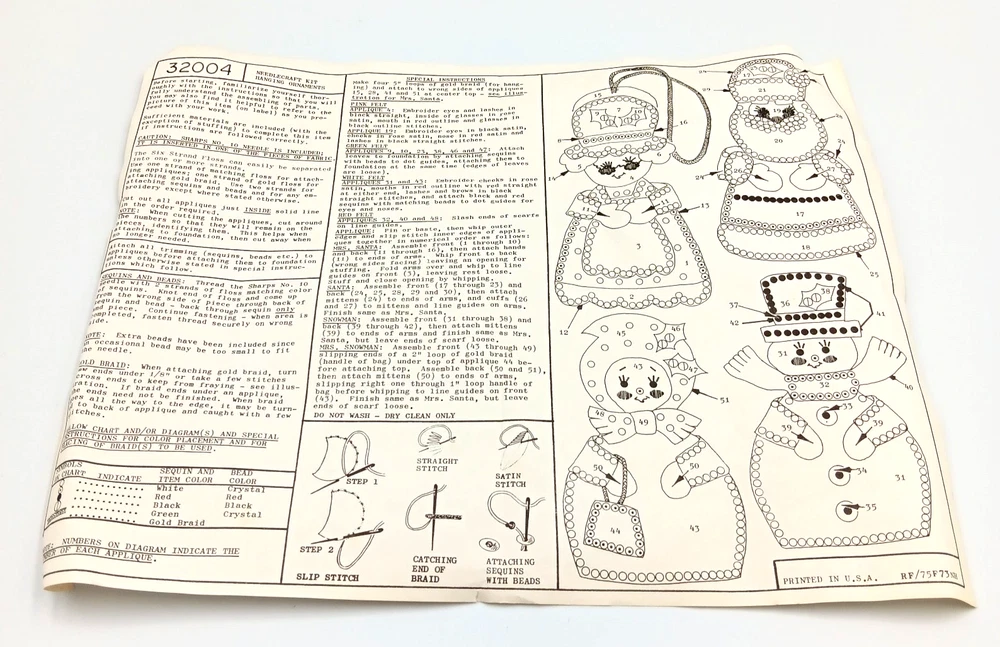 32004
NEEDLECRAFT KIT
HANGING ORNAMENTS
Before starting, familiarize yourself thor-
oughly with the instructions so that you will
fully understand the assembling of parts.
You may also find it helpful to refer to the
picture of this item (on label) as you pro-
ceed with your work.
Sufficient materials are included (with the
of stuffing) to complete this item
if instructions are followed correctly.
CAUTION: SHARPS NO. 10 NEEDLE IS INCLUDED;
IT IS INSERTED IN ONE OF THE PIECES OF FABRIC.
The Six Strand Floss can easily be separated
into one or more strands.
one strand of floss matching color
appliques; one strand of gold floss for
attaching gold braid. Use two strands for
attaching sequins and beads and for any em-
broidery except where stated otherwise.
Cut out all appliques just INSIDE solid line
in the order required.
NOTE: When cutting the appliques, cut around
the numbers so that they will remain on the
pieces, identifying them. This helps when
attaching to foundation, then cut away when
no longer needed.
Attach all trimming (sequins, beads etc.) to
appliques before attaching them to foundation
unless otherwise stated in special instruc-
tions which follow.
SEQUINS AND BEADS: Thread the Sharps No. 10
needle with 2 strands of floss matching color
of sequins. Knot end of floss and come up
from the wrong side of piece through center of
sequin and bead - back through sequin only
Continue fastening - when area is
completed, fasten thread securely on wrong
side.
NOTE: Extra beads have been included since
an occasional bead may be too small to fit
the needle.
GOLD BRAID: When attaching gold braid, turn
raw ends under 1/8" or take a few stitches
across ends to keep from fraying - see illus-
tration. If braid ends under an applique,
the ends need not be finished. When braid
goes all the way to the edge, it may be turn-
ed to back of applique and caught with a few
stitches.
FOLLOW CHART AND/OR DIAGRAM(S) AND SPECIAL
INSTRUCTIONS FOR COLOR PLACEMENT AND FOR
SPACING OF BRAID(S) TO BE USED.
SYMBOLS
CHART INDICATE
SEQUIN AND BEAD
ITEM COLOR COLOR
White Crystal
Red Red
Black Black
Green Crystal
Gold Braid
NUMBERS ON DIAGRAM INDICATE THE
OF EACH APPLIQUE.
SPECIAL INSTRUCTIONS
Make four 5" loops of gold braid (for hang-
ing) and attach to wrong sides of appliques
15, 28, 41 and 51 at center top - see illus-
tration for Mrs. Santa.
PINK FELT
APPLIQUE 4: Embroider eyes and lashes in
black straight, inside of glasses in rose
satin, mouth in red outline and glasses in
black outline stitches.
APPLIQUE 19: Embroider eyes in black satin,
cheeks in rose satin, nose in red satin and
lashes in black straight stitches.
GREEN FELT
APPLIQUES 9, 10, 23, 38, 46 and 47: Attach
leaves to foundation by attaching sequins
with beads to dot guides, attaching them to
foundation at the same time (edges of leaves
are loose).
WHITE FELT
APPLIQUES 31 and 43: Embroider cheeks in rose
satin, mouths in red outline with red straight
at either end, lashes and brows in black
straight stitches, and attach black and red
sequins with matching beads to dot guides for
eyes and noses.
RED FELT
APPLIQUES 32, 40 and 48: Slash ends of scarfs
on line guides.
APPLIQUE: Pin or baste, then whip outer
edges and slip stitch inner edges of appli-
ques together in numerical order as follows:
MRS. SANTA: Assemble front (1 through 10)
and back (11 through 15), then attach hands
(11) to ends of arms. Whip front to back
(wrong sides facing) leaving an opening for
stuffing. Fold arms over and whip to line
guides on front (3), leaving rest loose.
Stuff and close opening by whipping.
SANTA: Assemble front (17 through 23) and
back (24, 25, 28, 29 and 30), then attach
mittens (24) to ends of arms, and cuffs (26
and 27) to mittens and line guides on arms.
Finish same as Mrs. Santa.
SNOWMAN: Assemble front (31 through 38) and
back (39 through 42), then attach mittens
(39) to ends of arms and finish same as Mrs.
Santa, but leave ends of scarf loose.
MRS. SNOWMAN: Assemble front (43 through 49)
slipping ends of a 2" loop of gold braid
(handle of bag) under top of applique 44 be-
fore attaching top. Assemble back (50 and 51),
then attach mittens (50) to ends of arms,
slipping right one through 1" loop handle of
bag before whipping to line guides on front
(43). Finish same as Mrs. Santa, but leave
ends of scarf loose.
DO NOT WASH - DRY CLEAN ONLY
STEP 1
STEP 2
SLIP STITCH
STRAIGHT
STITCH
SATIN
STITCH
CATCHING
END OF
BRAID
ATTACHING
SEQUINS
WITH BEADS
15
7
16
8
6
5
14
13
3
2
12
17
21
20
26
17
18
25
37
36
38
42
41
31
32
40
33
39
39
34
35
45
46
47
43
51
48
49
50
50
44
43
PRINTED IN U.S.A.
RF/75F73